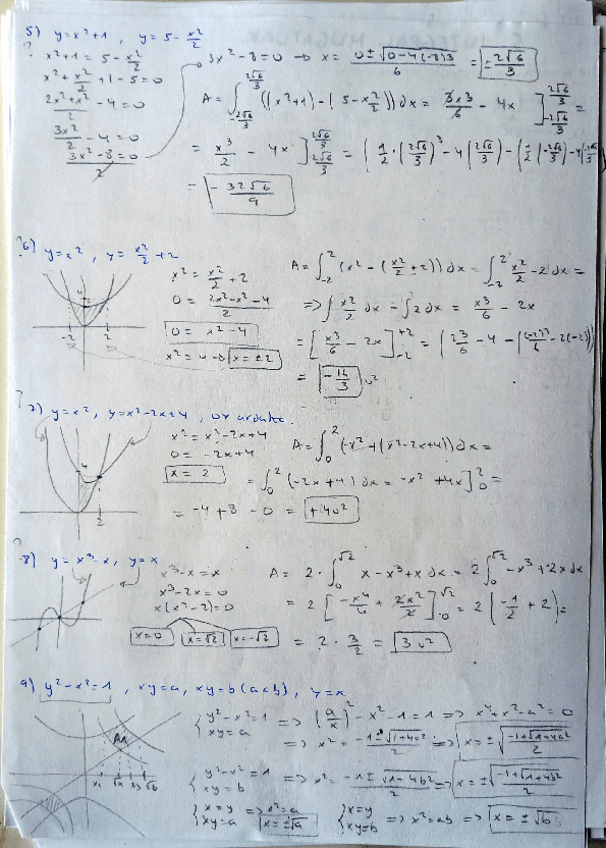 5) y=x²+1 , y=5-x²/2
?
x²+1 = 5-x²/2
x²+x²/2+1-5=0
(2x²+x²)/2 -4=0
3x²/2 -4=0
(3x²-8=0)/2
3x²-8=0 → x= (0±√(0-4(-8)3))/6 = ±2√6/3
A= ∫_{-2√6/3}^{2√6/3} ((x²+1)-(5-x²/2)) dx = 3x³/6 - 4x ]_{-2√6/3}^{2√6/3} =
= x³/2 - 4x ]_{-2√6/3}^{2√6/3} = (1/2·(2√6/3)³-4(2√6/3)-(1/2(-2√6/3)-4(-2√6/3
= -32√6/9
?6) y=x² , y= x²/2+2
x² = x²/2+2
0= (2x²-x²-4)/2
0= x²-4
x²=4 → x=±2
-2 2
A= ∫_{-2}^{2} (x²-(x²/2+2)) dx = ∫_{-2}^{2} x²/2-2 dx =
=> ∫x²/2 dx - ∫2 dx = x³/6 - 2x
= [x³/6 - 2x]_{-2}^{+2} = (2³/6 - 4 - ((-2)³/6 -2(-2))
= -16/3 u²
?
7) y=x², y=x²-2x+4 , OY ardatz.
x²=x²-2x+4
0= -2x+4
x = 2
4
2
A= ∫_0^2 (-x²+(x²-2x+4)) dx =
= ∫_0^2 (-2x+4) dx = -x² +4x]_0^2 =
= -4+8 -0 = +4u²
?
8) y=x³-x, y=x
x³-x=x
x³-2x=0
x(x²-2)=0
x=0 x=√2 x=-√2
A= 2·∫_0^{√2} x-x³+x dx = 2∫_0^{√2} -x³+2x dx
= 2 [-x⁴/4 + 2x²/2]_0^{√2} = 2(-1/2 +2)=
= 2·3/2 = 3u²
9) y²-x²=1 , xy=a, xy=b (a<b), y=x
{ y²-x²=1 xy=a => (a/x)²-x²-1=1 => x⁴+x²-a²=0
=> x²= (-1±√(1+4a²))/2 => x=±√((-1+√(1+4a²))/2)
{ y²-x²=1 xy=b => x²= (-1±√(1-4b²))/2 => x=±√((-1+√(1+4b²))/2)
{ x=y xy=a => x²=a x=±√a { x=y xy=b => x²=ab => x=±√b